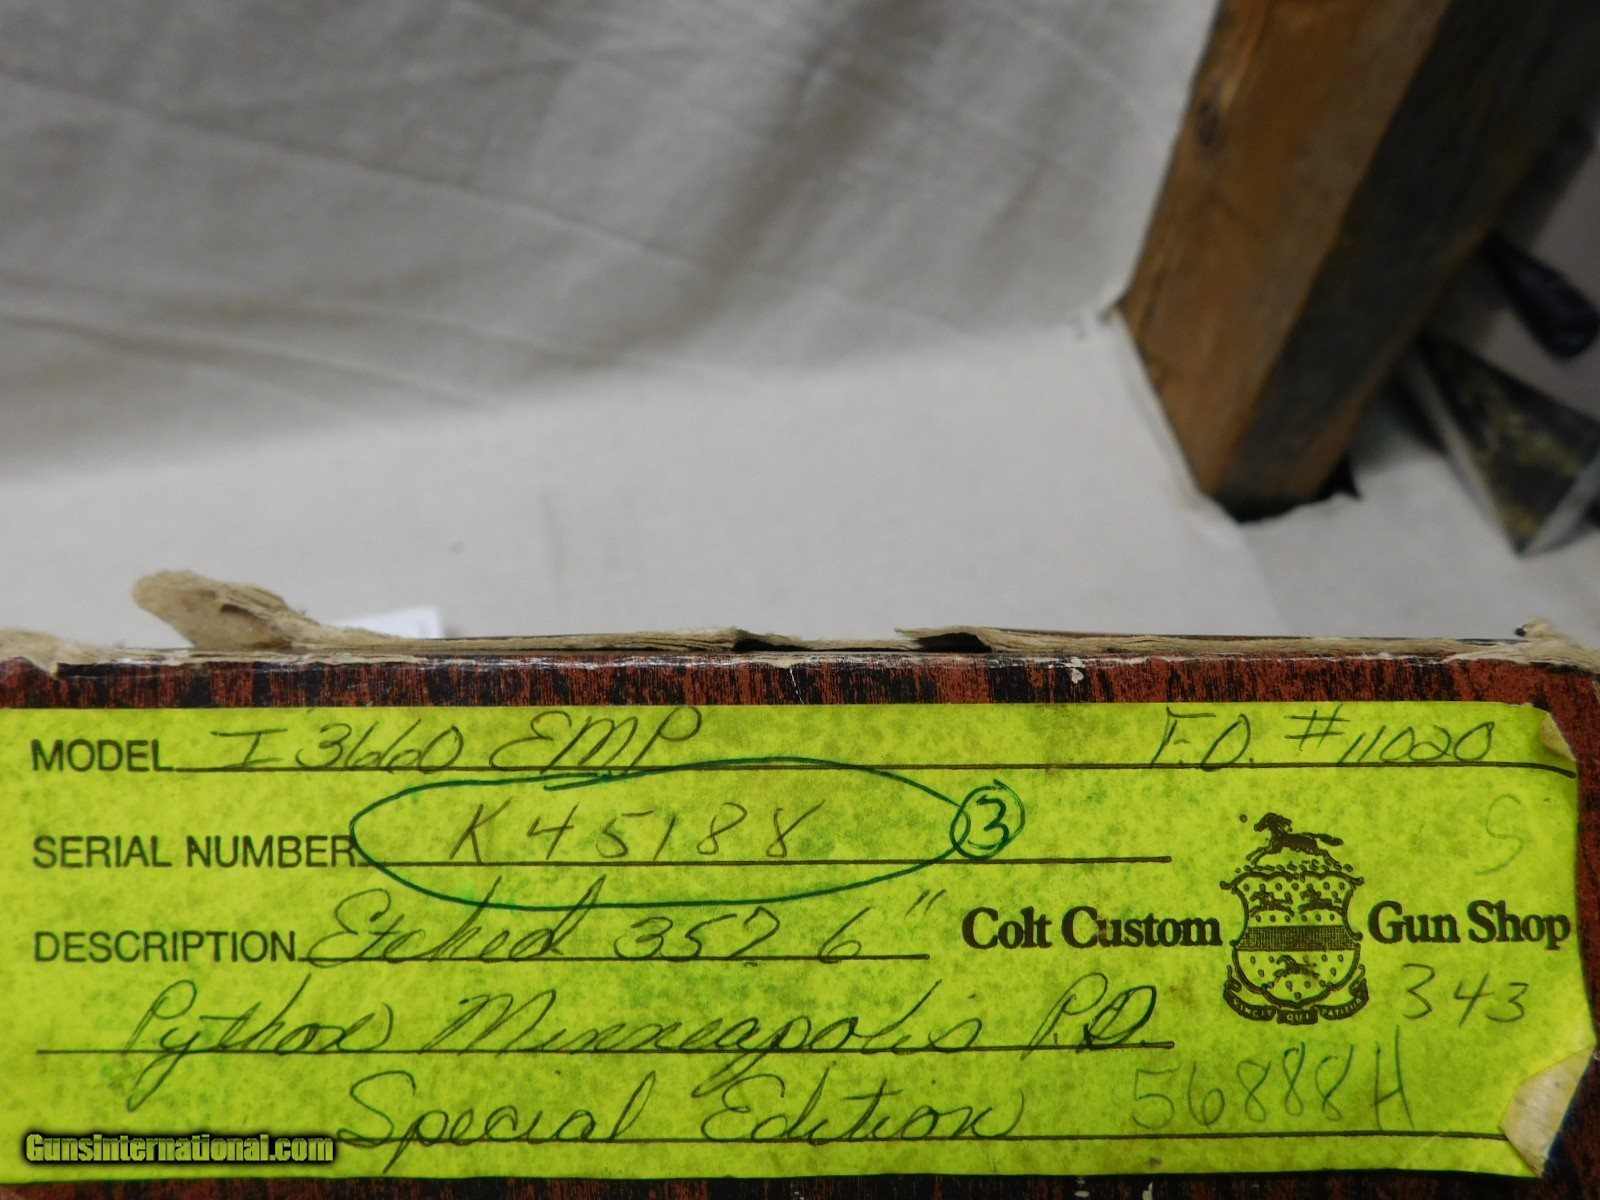 MODEL I3660 EMP F.O. #11020
SERIAL NUMBER K45188 3
S
DESCRIPTION Etched 357 6" Colt Custom Gun Shop
343
Python Minneapolis P.D.
Special Edition 56888H
GunsInternational.com